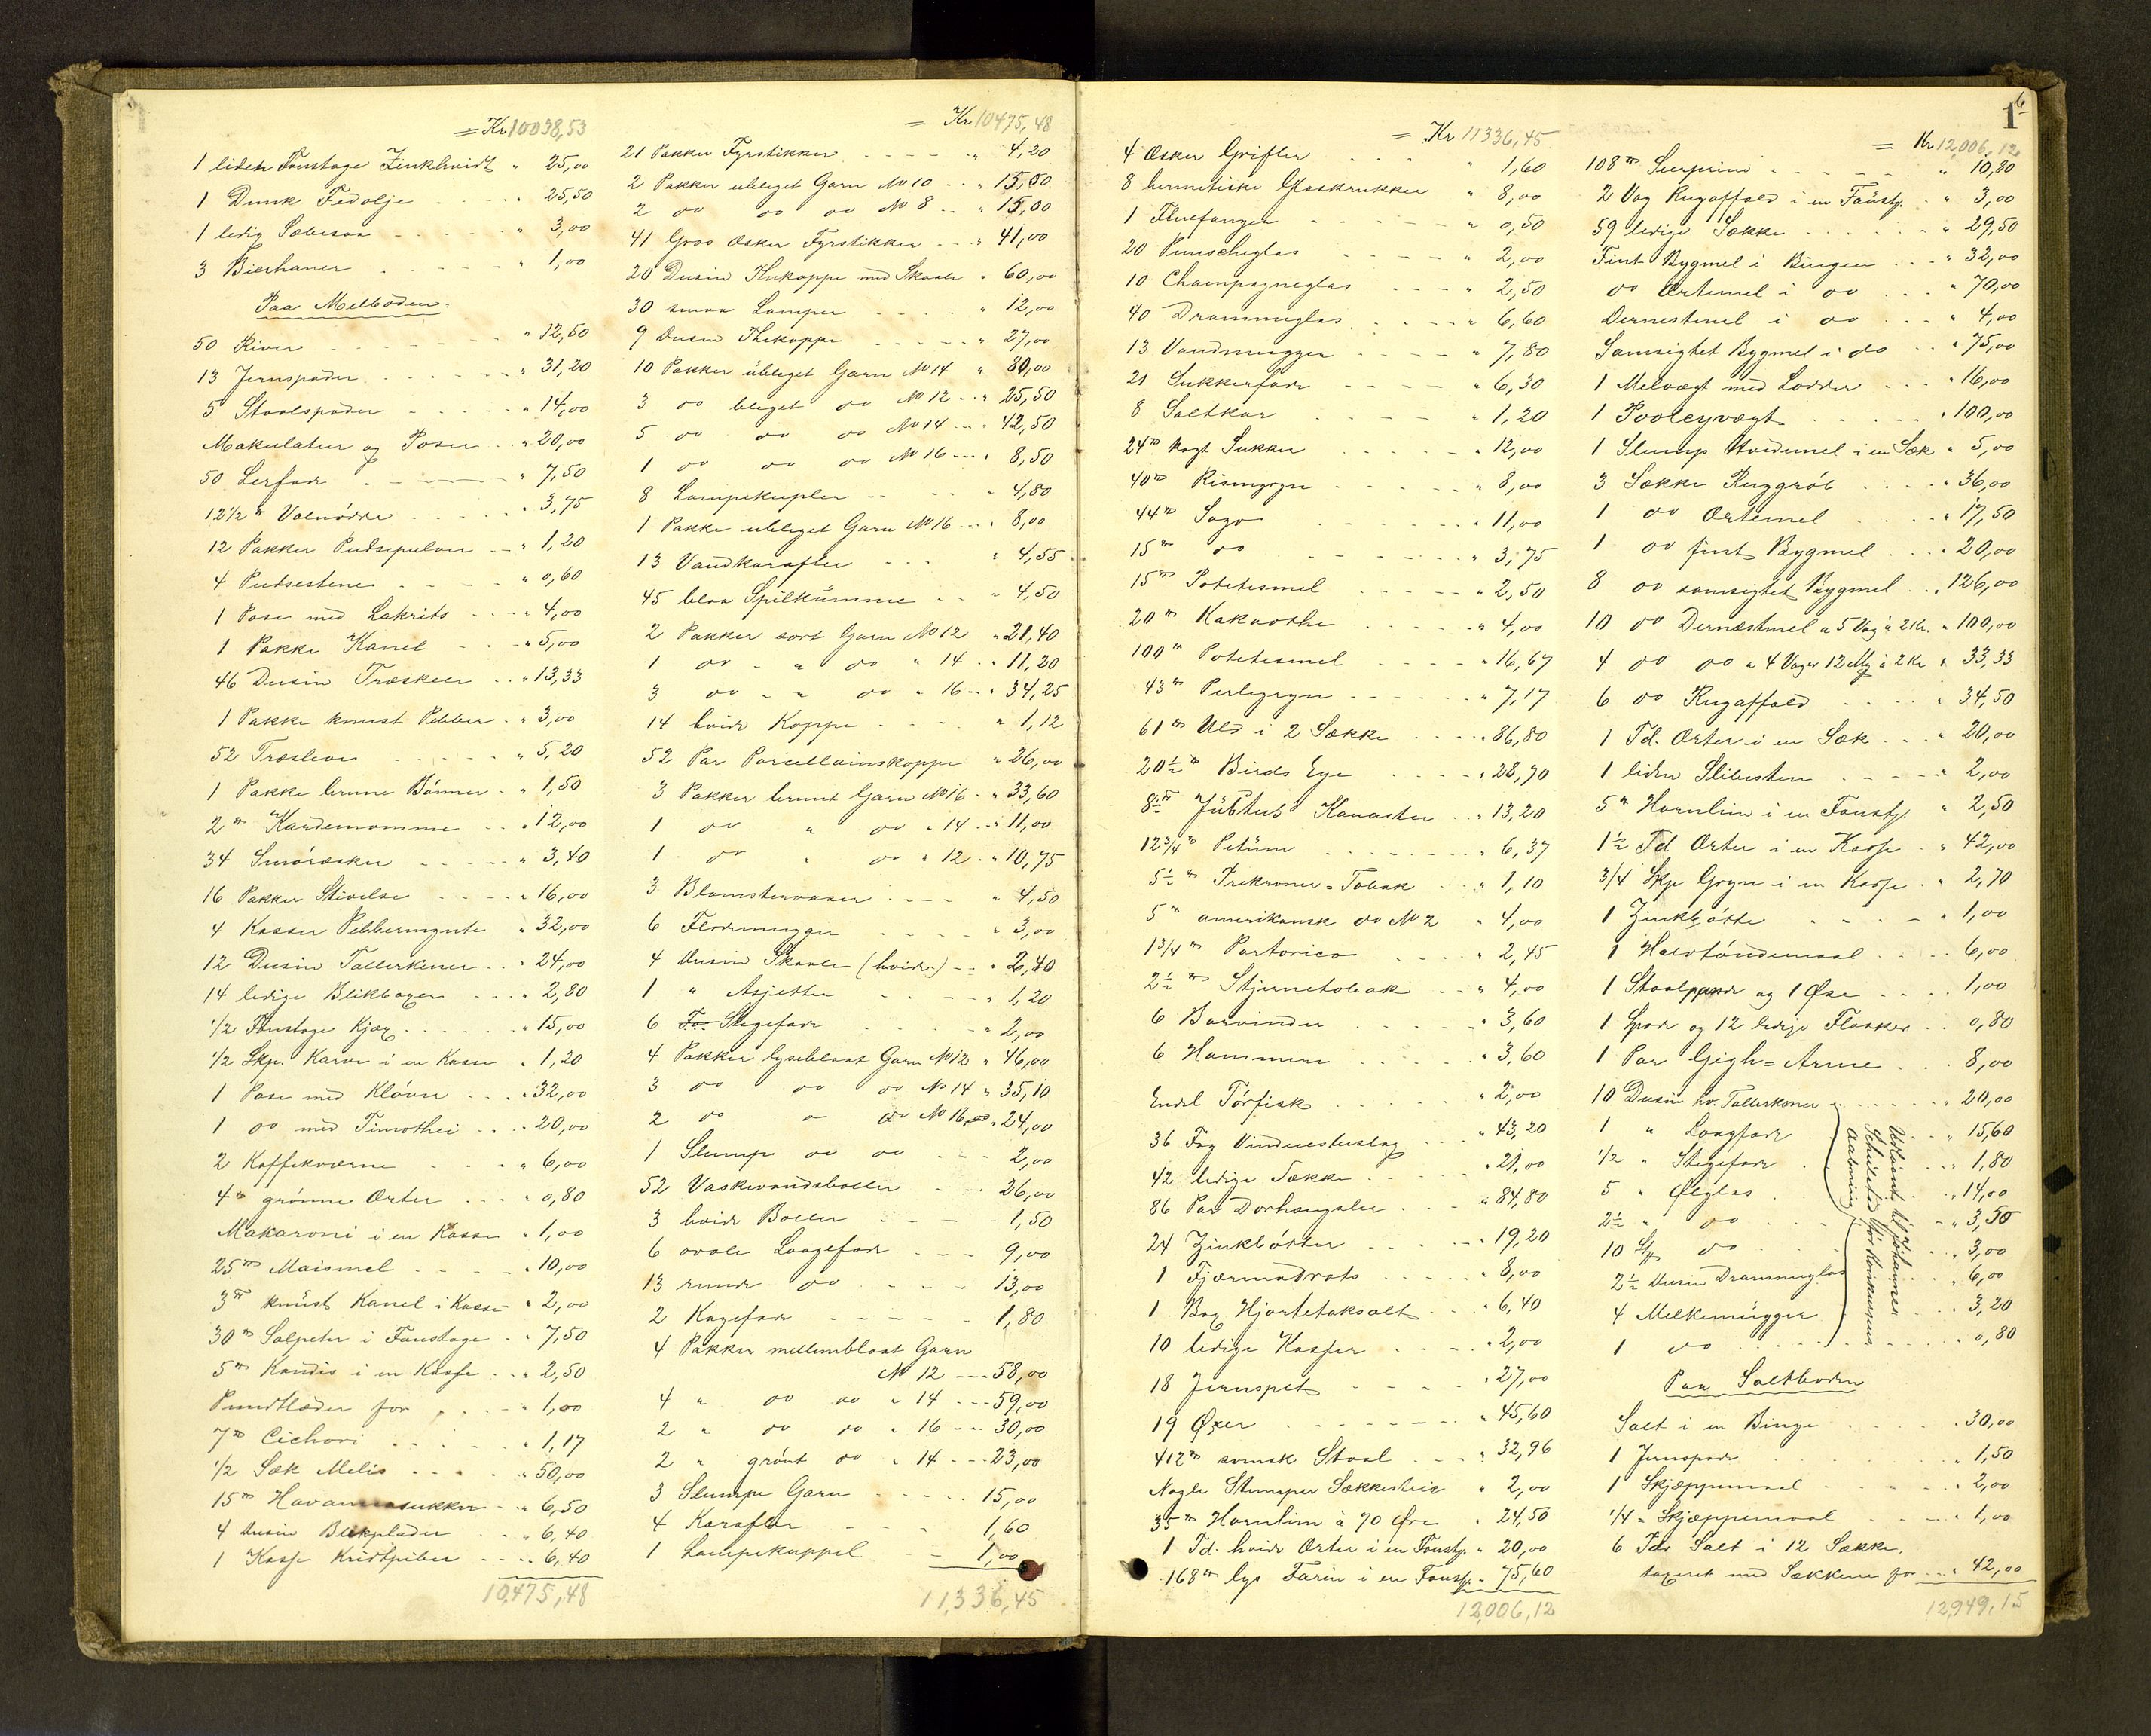 = Kr 10038,53
1 liden Foustage Zinkhvidt " 25,00
1 Dunk Fedolje " 25,50
1 ledig Sæbesaa " 3,00
3 Bierhaner " 1,00
Paa Melboden.
50 River " 12,50
13 Jernspader " 31,20
5 Staalspader " 14,00
Makulatur og Poser " 20,00
50 Lerfade " 7,50
12 1/2 Valnødde " 3,75
12 Pakker Pudsepulver " 1,20
4 Pudsestene " 0,60
1 Pose med Lakrits " 4,00
1 Pakke Kanel " 5,00
46 Dusin Træskeer " 13,33
1 Pakke knust Pebber " 3,00
52 Træsleve " 5,20
1 Pakke brune Bønner " 1,50
2 Kardemomme " 12,00
34 Smøræsker " 3,40
16 Pakker Stivelse " 16,00
4 Kasser Pebbermynte " 32,00
12 Dusin Tallerkener " 24,00
14 ledige Blikboxer " 2,80
1/2 Foustage Kjæx " 15,00
1/2 Skp. Karve i en Kasse " 1,20
1 Pose med Kløver " 32,00
1 do med Timothei " 20,00
2 Kaffekværne " 6,00
4 grønne Erter " 0,80
Makaroni i en Kasse " 1,00
25 Maismel " 10,00
3 knust Kanel i Kasse " 2,00
30 Salpeter i Foustage " 7,50
5 Kandis i en Kasse " 2,50
Pundtlæder for " 1,00
7 Cichori " 1,17
1/2 Sæk Melis " 50,00
15 Havannasukker " 6,50
4 Dusin Blikplader " 6,40
1 Kasse Kridtpiber " 6,40
10475,48
= Kr 10475,48
21 Pakker Fyrstikker " 4,20
2 Pakker ubleget Garn No 10 " 15,00
2 do do do No 8 " 15,00
41 Gros Æsker Fyrstikker " 41,00
20 Dusin Thekoppe med Skaale " 60,00
30 smaa Lamper " 12,00
9 Dusin Thekoppe " 27,00
10 Pakker ubleget Garn No 14 " 80,00
3 do bleget do No 12 " 25,50
5 do do do No 14 " 42,50
1 do do do No 16 " 8,50
8 Lampekupler " 4,80
1 Pakke ubleget Garn No 16 " 8,00
13 Vandkarafler " 4,55
45 blaa Spilkumme " 4,50
2 Pakker sort Garn No 12 " 21,40
1 do " do " 14 " 11,20
3 do " do " 16 " 34,25
14 hvide Koppe " 1,12
52 Par Porcellainskoppe " 26,00
3 Pakker brunt Garn No 16 " 33,60
1 do " do " 14 " 11,00
1 do " do " 12 " 10,75
3 Blomstervaser " 4,50
6 Flødemugger " 3,00
4 Dusin Skaale (hvide) " 2,40
1 " Asjetter " 1,20
6 Fa Stegefade " 2,00
4 Pakker lyseblaat Garn No 12 " 46,00
3 do do do No 14 " 35,10
2 do do do No 16 " 24,00
1 Slump do do 2,00
52 Vaskevandsboller 26,00
3 hvide Boller 1,50
6 ovale Laagefade 9,00
13 runde do 13,00
2 Kagefade 1,80
4 Pakker mellemblaat Garn
No 12 58,00
4 " do do " 14 59,00
2 " do do " 16 30,00
2 " grønt do " 14 23,00
3 Slumpe Garn 15,00
4 Karafler 1,60
1 Lampekuppel 1,00
11,336,45
1
= Kr 11336,45
4 Æsker Grifler " 1,60
8 hermetiske Glaskrukker " 8,00
1 Fluefanger " 0,50
20 Punscheglas " 2,00
10 Champagneglas " 2,50
40 Drammeglas " 6,60
13 Vandmugger " 7,80
21 Sukkerfade " 6,30
8 Saltkar " 1,20
24 kogt Sukker " 12,00
40 Risengryn " 8,00
44 Sago " 11,00
15 do " 3,75
15 Potetesmel " 2,50
20 Kakaothe " 4,00
100 Potetesmel " 16,67
43 Perlegryn " 7,17
61 Uld i 2 Sække " 86,80
20 1/2 Birds Eye " 28,70
8 1/2 Justus Kanaster " 13,20
12 3/4 Petum " 6,37
5 1/2 Trekroner=Tobak " 1,10
5 amerikansk do No 2 " 4,00
1 3/4 Portorico " 2,45
2 1/2 Stjernetobak " 4,00
6 Borvinder " 3,60
6 Hammere " 3,60
Endel Tørfisk " 2,00
36 Fag Vinduesbeslag " 43,20
42 ledige Sække " 21,00
86 Par Dørhængsler " 84,80
24 Zinkbøtter " 19,20
1 Fjærmadrats " 8,00
1 Box Hjortetaksalt " 6,40
10 ledige Kasser " 2,00
18 Jernspet " 27,00
19 Øxer " 45,60
412 svensk Staal " 32,96
Nogle Stumper Sækkestrie " 2,00
35 Hornlim à 70 Øre " 24,50
1 Td. hvide Erter i en Foustg. " 20,00
168 lys Farin i en Foustg. " 75,60
12,006,12
= Kr 12,006,12
108 Seerprim " 10,80
2 Vog Rugaffald i en Foustg. " 3,00
59 ledige Sække " 29,50
Fint Bygmel i Bingen " 32,00
do Ertemel i do " 70,00
Dernestmel i do " 4,00
Samsigtet Bygmel i do " 75,00
1 Melvægt med Lodder " 16,00
1 Pooleyvægt " 100,00
1 Slump Hvedemel i en Sæk " 5,00
3 Sække Ruggrøb " 36,00
1 do Ertemel " 17,50
1 do fint Bygmel " 20,00
8 do samsigtet Bygmel " 126,00
10 do Dernæstmel a 5 Vog à 2 Kr. " 100,00
4 do do a 4 Voger 12 Mg à 2 Kr " 33,33
6 do Rugaffald " 34,50
1 Td. Erter i en Sæk " 20,00
1 liden Slibesten " 2,00
5 Hornlim i en Foustg. " 2,50
1 1/2 Td Erter i en Kasse " 42,00
3/4 Skp Gryn i en Kasse " 2,70
1 Zinkbøtte " 1,00
1 Halvtøndemaal 6,00
1 Staalspade og 1 Øse 1,00
1 Spade og 12 ledige Flasker 0,80
1 Par Gigh=Arme 8,00
10 Dusin hv. Tallerkener " 20,00
1 " Laagfade " 15,60
1/2 " Stegefade 1,80
5 " Ølglas " 14,00
2 1/2 " do " 3,50
10 do " 3,00
2 1/2 Dusin Drammeglas " 6,00
4 Melkemugger 3,20
1 do 0,80
Udlaant til Johannes
Schultetid før konkursens
aabning
Paa Saltboden
Salt i en Binge 30,00
1 Jernspade " 1,50
1 Skjæppemaal " 2,00
1/4 " Skjæppemaal " 1,00
6 Tdr Salt i 12 Sække,
taxeret med Sækkene for " 42,00
12,949,15